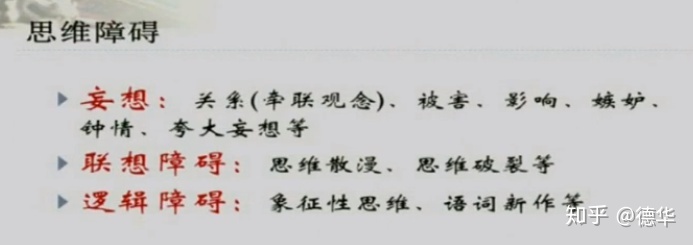 思维障碍
妄想：关系(牵联观念)、被害、影响、嫉妒、
钟情、夸大妄想等
联想障碍：思维散漫、思维破裂等
逻辑障碍：象征性思维、语词新作等
知乎 @德华